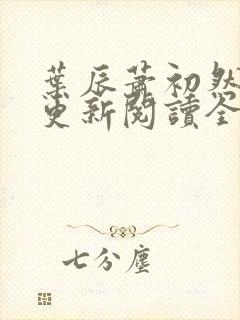 葉辰蕭初然
更新閱讀全
七分塵